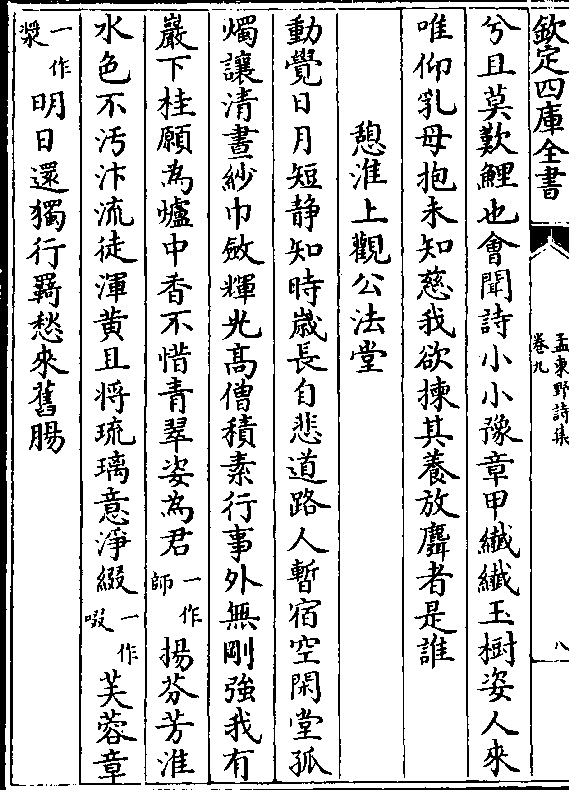 欽定四庫全書
孟東野詩集
卷九
八
兮且莫歎鯉也會聞詩小小豫章甲纖纖玉樹姿人來
唯仰乳母抱未知慈我欲揀其養放麛者是誰
憩淮上觀公法堂
動覺日月短静知時嵗長自悲道路人暫宿空閑堂孤
燭讓清晝紗巾斂輝光髙僧積素行事外無剛强我有
巖下桂願為爐中香不惜青翠姿為君一作師揚芬芳淮
水色不汚汴流徒渾黄且将琉璃意淨綴一作啜芙蓉章
一作漿明日還獨行羇愁來舊腸